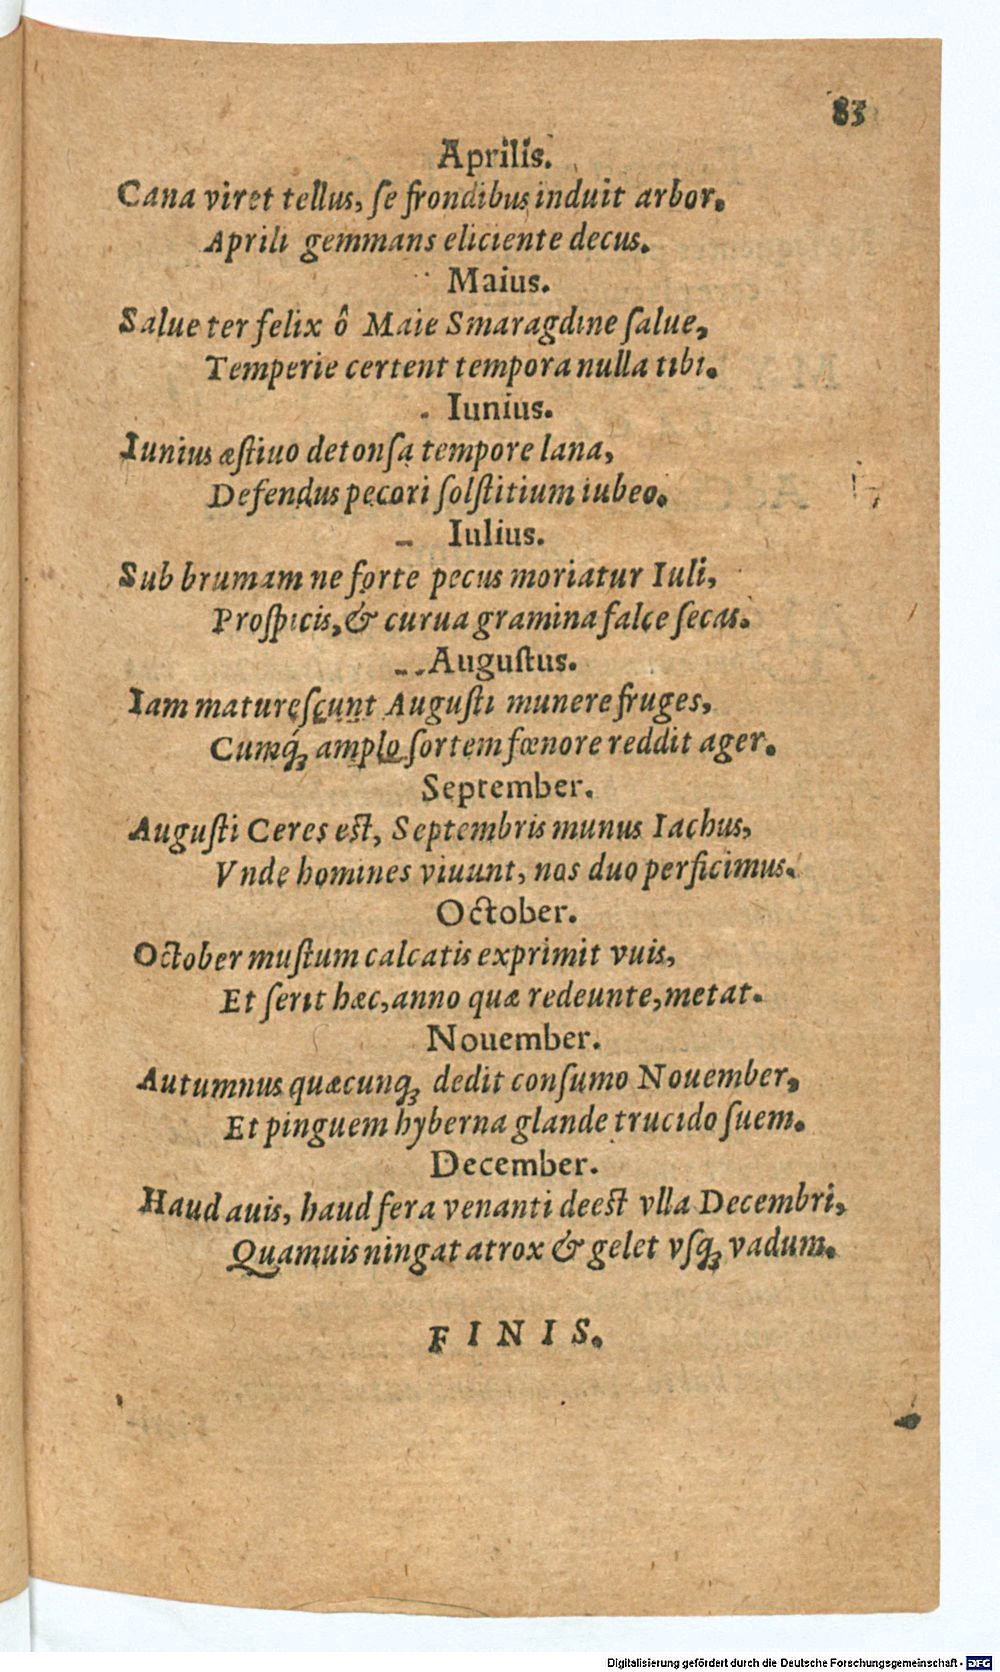 83
Aprilis.
Cana viret tellus, ſe frondibus induit arbor.
Aprili gemmans eliciente decus.
Maius.
Salue ter felix ô Maie Smaragdine ſalue,
Temperie certent tempora nulla tibi.
Iunius.
Iunius æſtiuo detonſa tempore lana,
Defendus pecori ſolſtitium iubeo.
Iulius.
Sub brumam ne forte pecus moriatur Iuli,
Proſpicis, & curua gramina falce ſecas.
Auguſtus.
Iam matureſcunt Auguſti munere fruges,
Cumq́ꝫ amplo ſortem fœnore reddit ager.
September.
Auguſti Ceres eſt, Septembris munus Iachus,
Vnde homines viuunt, nos duo perficimus.
October.
October muſtum calcatis exprimit vuis,
Et ſerit hæc, anno quæ redeunte, metat.
Nouember.
Autumnus quæcunqꝫ dedit conſumo Nouember,
Et pinguem hyberna glande trucido ſuem.
December.
Haud auis, haud fera venanti deeſt vlla Decembri,
Quamuis ningat atrox & gelet vſqꝫ vadum.
FINIS.
Digitalisierung gefördert durch die Deutsche Forschungsgemeinschaft - DFG